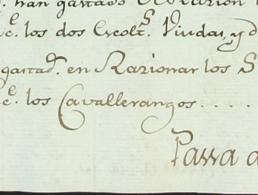 han gastado
c. los dos Escolt.s Viudas, y d
gastad. en Razionar los S
c. los Cavallerangos....
Passa a